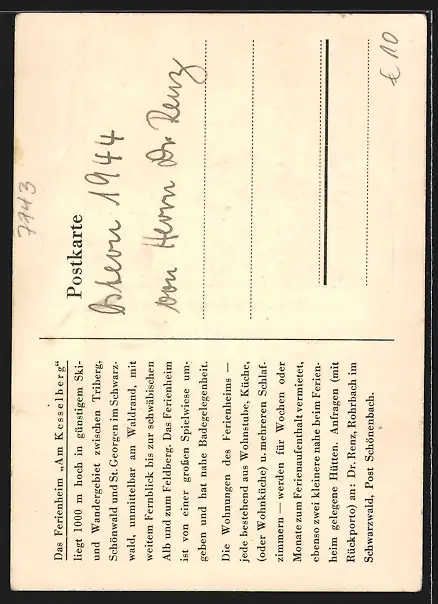 Das Ferienheim „Am Kesselberg“
liegt 1000 m hoch in günstigem Ski-
und Wandergebiet zwischen Triberg,
Schönwald und St. Georgen im Schwarz-
wald, unmittelbar am Waldrand, mit
weitem Fernblick bis zur schwäbischen
Alb und zum Feldberg. Das Ferienheim
ist von einer großen Spielwiese um-
geben und hat nahe Badegelegenheit.
Die Wohnungen des Ferienheims —
jede bestehend aus Wohnstube, Küche,
(oder Wohnküche) u. mehreren Schlaf-
zimmern — werden für Wochen oder
Monate zum Ferienaufenthalt vermietet,
ebenso zwei kleinere nahe beim Ferien-
heim gelegene Hütten. Anfragen (mit
Rückporto) an: Dr. Renz, Rohrbach im
Schwarzwald, Post Schönenbach.
7943
Postkarte
Ostern 1944
von Herrn Dr. Renz
€ 10